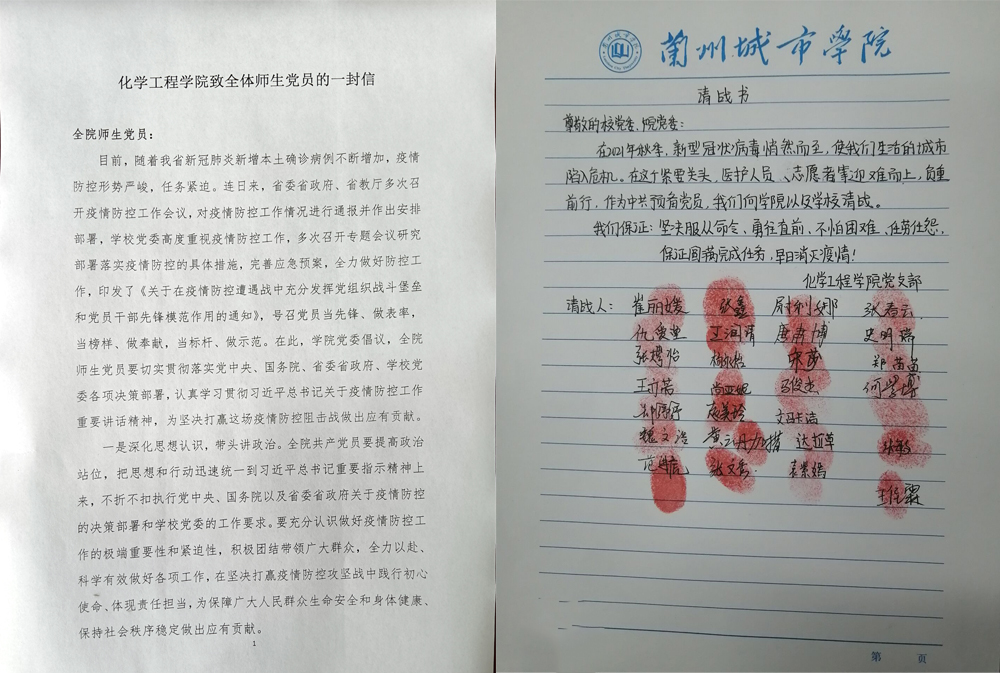 化学工程学院致全体师生党员的一封信
全院师生党员：
目前，随着我省新冠肺炎新增本土确诊病例不断增加，疫情
防控形势严峻，任务紧迫。连日来，省委省政府、省教厅多次召
开疫情防控工作会议，对疫情防控工作情况进行通报并作出安排
部署，学校党委高度重视疫情防控工作，多次召开专题会议研究
部署落实疫情防控的具体措施，完善应急预案，全力做好防控工
作，印发了《关于在疫情防控遭遇战中充分发挥党组织战斗堡垒
和党员干部先锋模范作用的通知》，号召党员当先锋、做表率，
当榜样、做奉献，当标杆、做示范。在此，学院党委倡议，全院
师生党员要切实贯彻落实党中央、国务院、省委省政府、学校党
委各项决策部署，认真学习贯彻习近平总书记关于疫情防控工作
重要讲话精神，为坚决打赢这场疫情防控阻击战做出应有贡献。
一是深化思想认识，带头讲政治。全院共产党员要提高政治
站位，把思想和行动迅速统一到习近平总书记重要指示精神上
来，不折不扣执行党中央、国务院以及省委省政府关于疫情防控
的决策部署和学校党委的工作要求。要充分认识做好疫情防控工
作的极端重要性和紧迫性，积极团结带领广大群众，全力以赴、
科学有效做好各项工作，在坚决打赢疫情防控攻坚战中践行初心
使命、体现责任担当，为保障广大人民群众生命安全和身体健康、
保持社会秩序稳定做出应有贡献。
1
兰州城市学院
请战书
尊敬的校党委、院党委：
在2021年秋季，新型冠状病毒悄然而至，使我们生活的城市
陷入危机。在这个紧要关头，医护人员、志愿者靠迎难而上，负重
前行，作为中共预备党员，我们向学院以及学校请战。
我们保证：坚决服从命令、勇往直前、不怕困难、任劳任怨，
保证圆满完成任务，早日消灭疫情！
化学工程学院党支部
请战人：崔丽媛 张鑫 尉利娜 张君云
史明瑞
郑苗苗
王莉蓉 尚亚妮 马俊杰
魏文浩 黄云丹加措 达拉草
张文秀 袁紫嫣
第 页